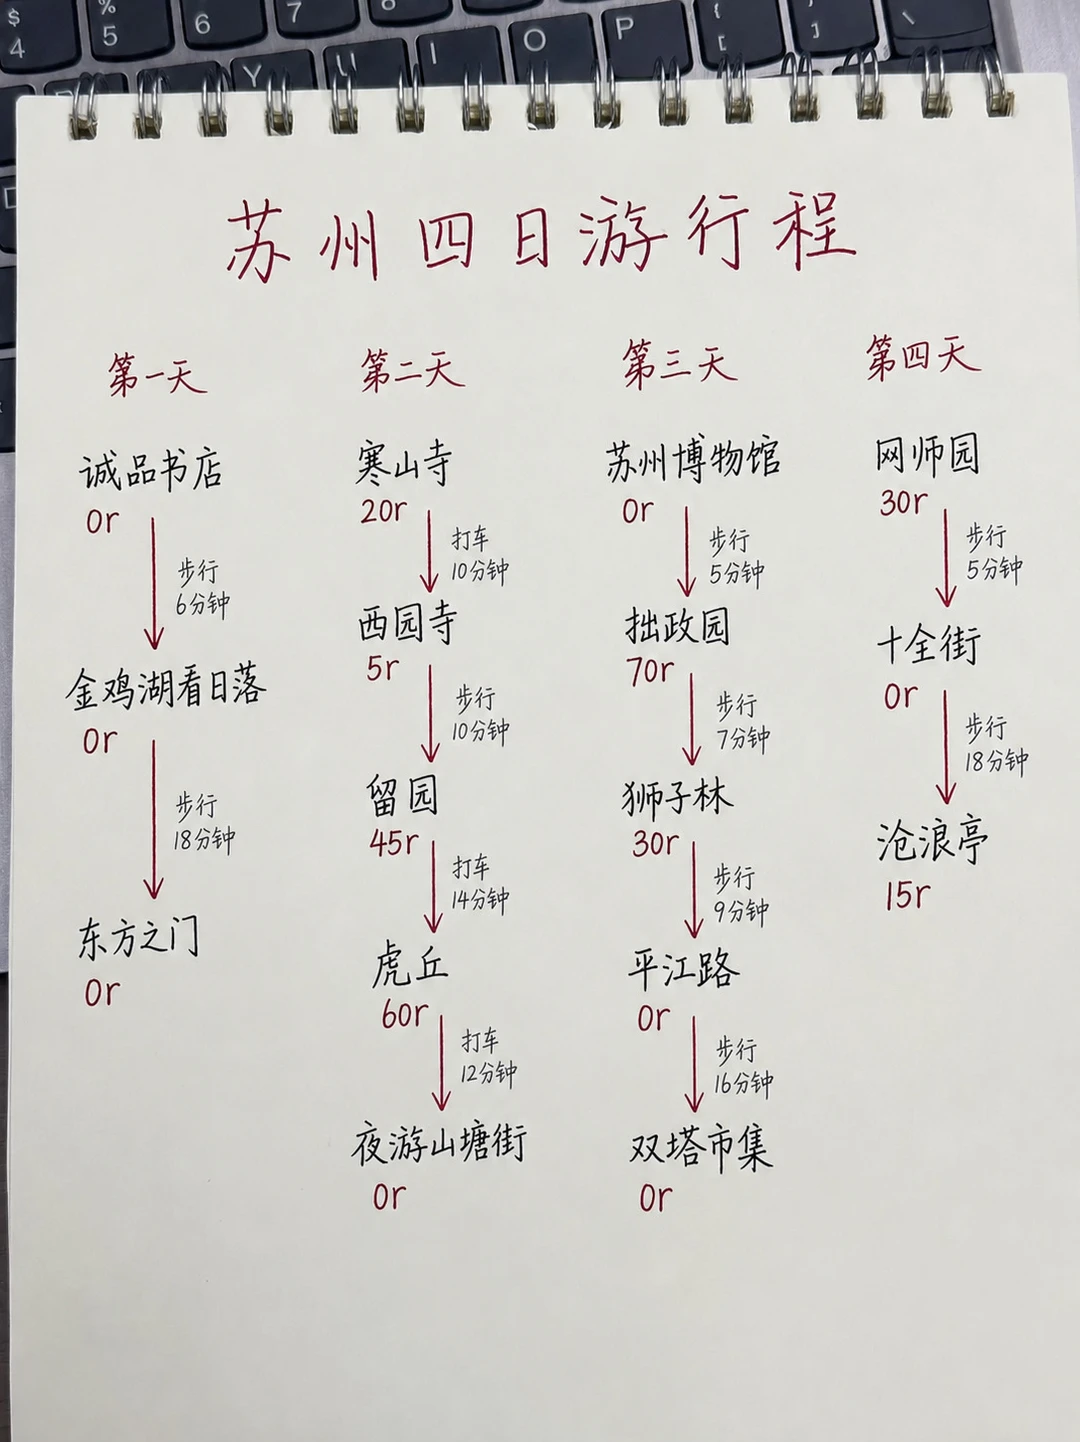 $
4
%
5
6
7
8
Y
U
I
O
P
{
[
}
]
\
苏州四日游行程
第一天
诚品书店
0r
步行
6分钟
金鸡湖看日落
0r
步行
18分钟
东方之门
0r
第二天
寒山寺
20r
打车
10分钟
西园寺
5r
步行
10分钟
留园
45r
打车
14分钟
虎丘
60r
打车
12分钟
夜游山塘街
0r
第三天
苏州博物馆
0r
步行
5分钟
拙政园
70r
步行
7分钟
狮子林
30r
步行
9分钟
平江路
0r
步行
16分钟
双塔市集
0r
第四天
网师园
30r
步行
5分钟
十全街
0r
步行
18分钟
沧浪亭
15r